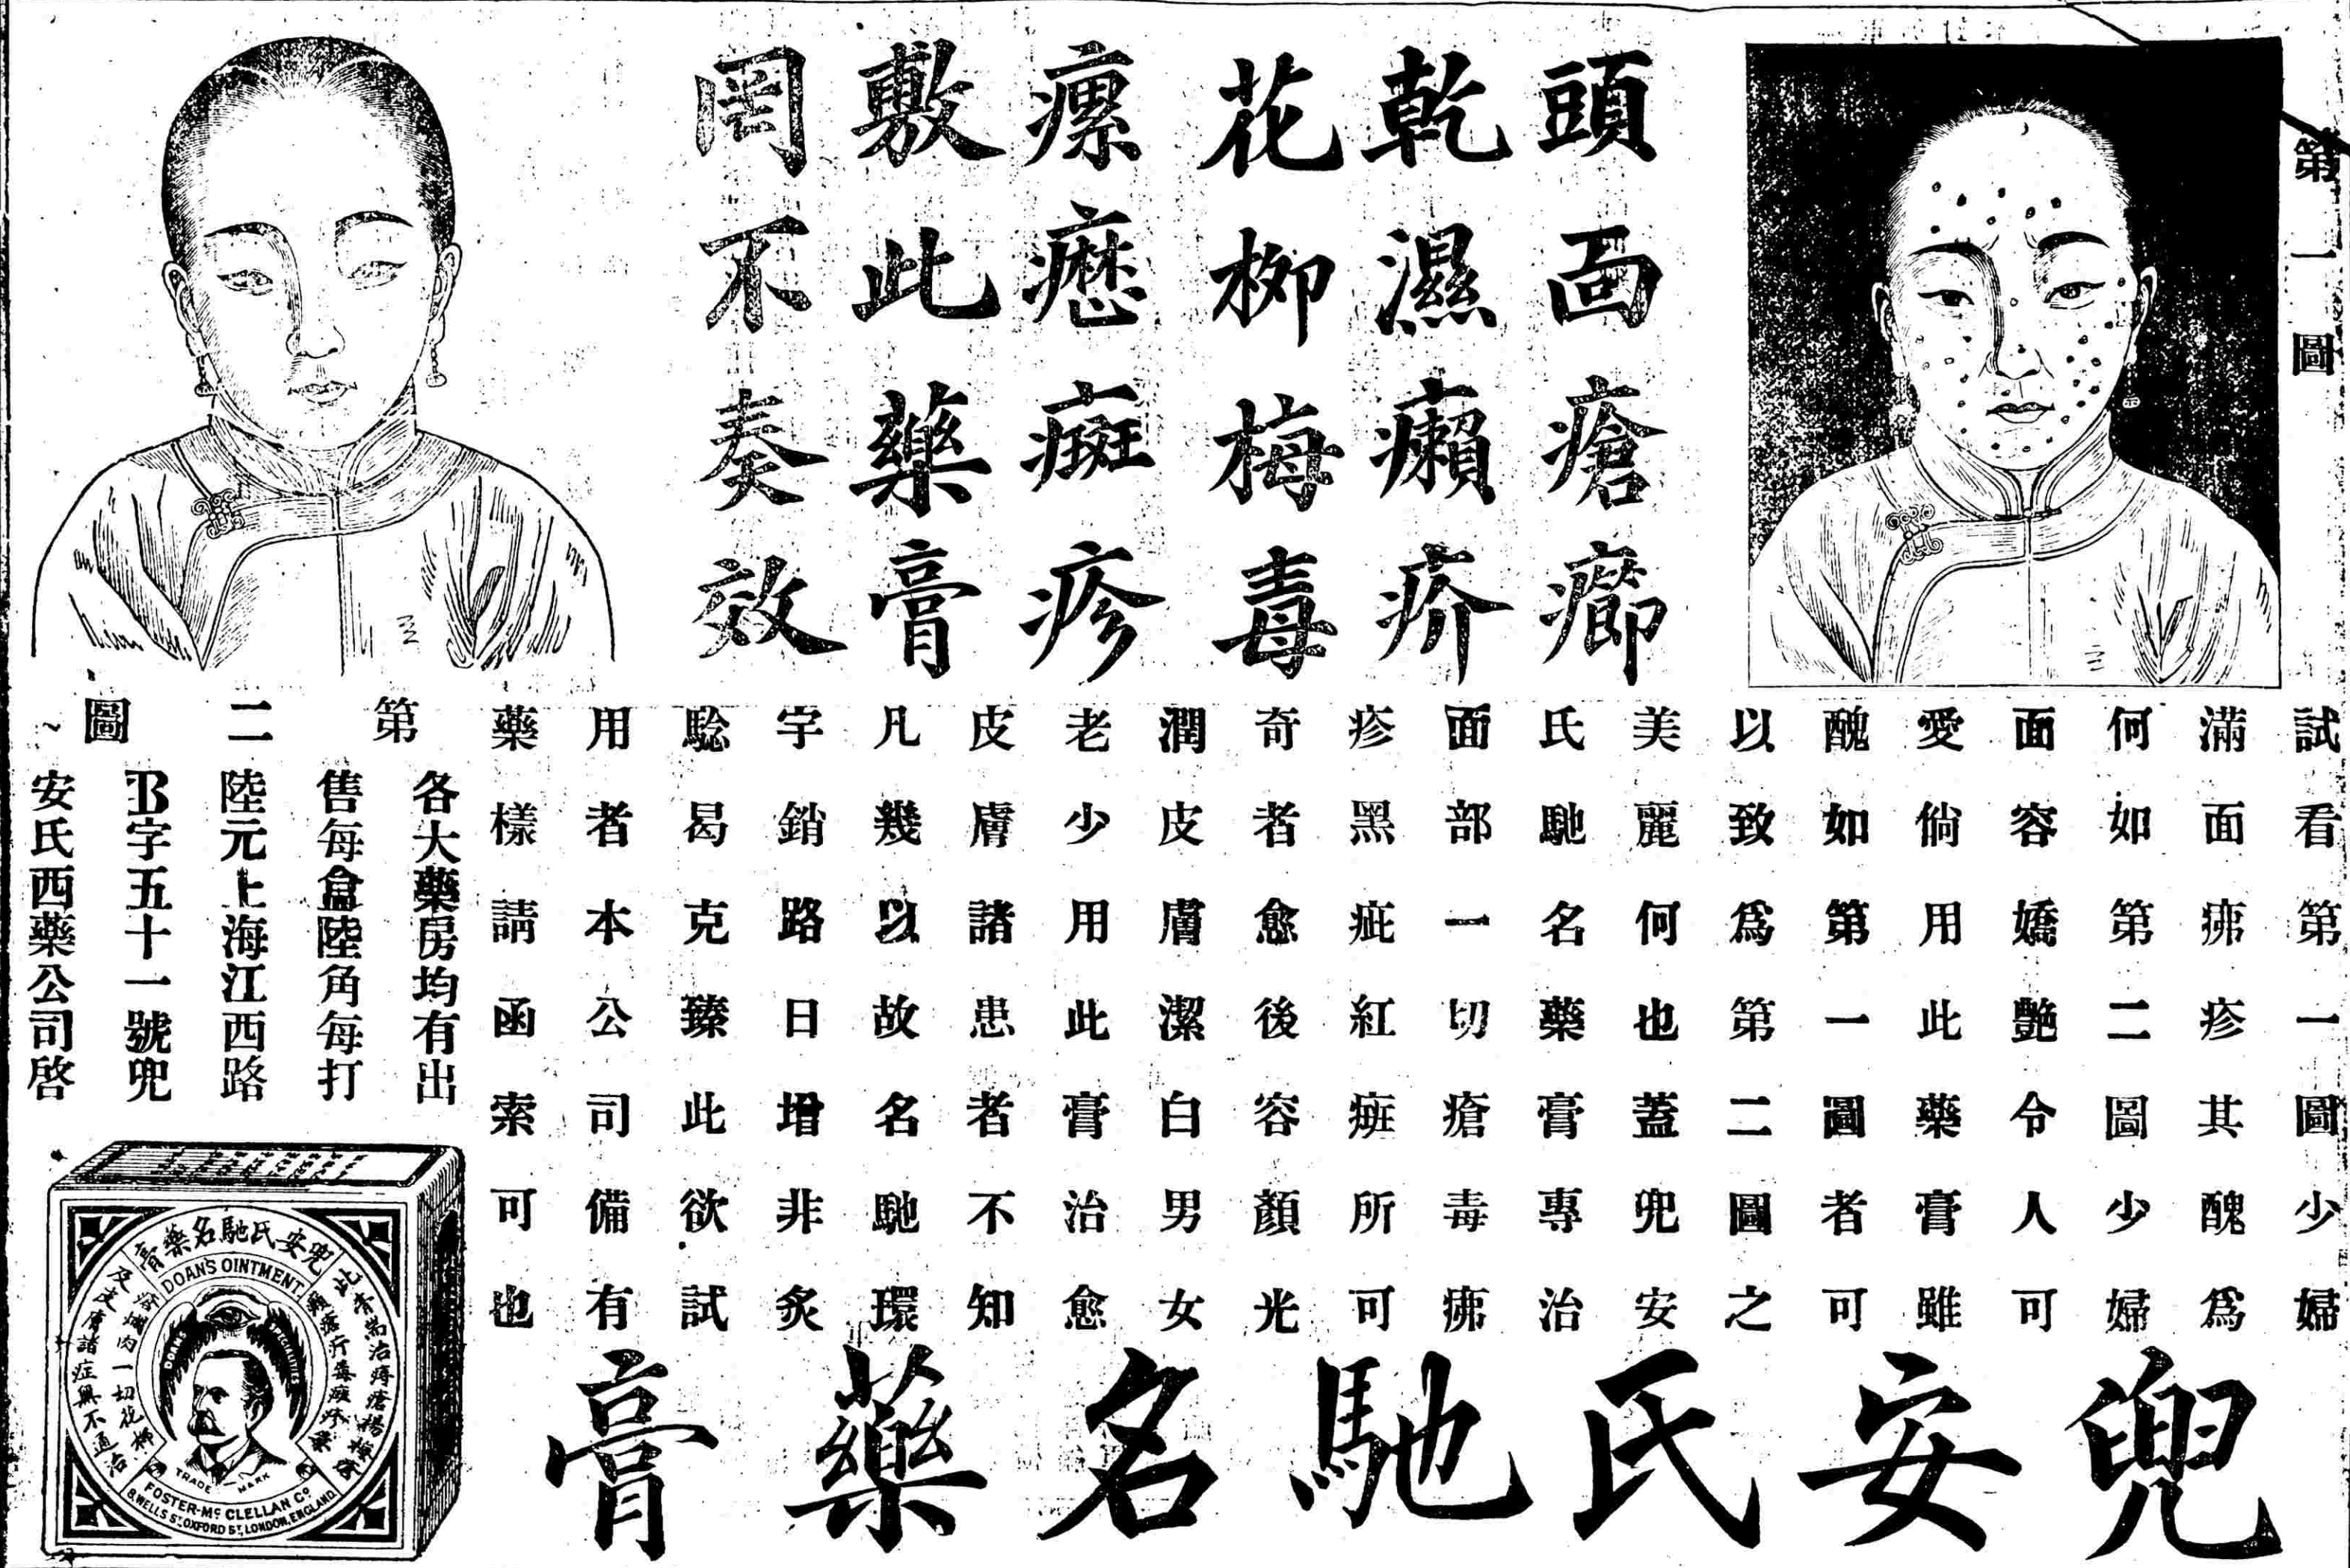 第一圖
頭面瘡癤
乾濕癩疥
花柳梅毒
瘰癧癍疹
敷此藥膏
罔不奏效
試看第一圖少婦
滿面疿疹其醜為
何如第二圖少婦
面容嬌艷令人可
愛倘用此藥膏雖
醜如第一圖者可
以致為第二圖之
美麗何也蓋兜安
氏馳名藥膏專治
面部一切瘡毒疿
疹黑疵紅癍所可
奇者愈後容顏光
潤皮膚潔白男女
老少用此膏治愈
皮膚諸患者不知
凡幾以故名馳環
宇銷路日增非炙
騐曷克臻此欲試
用者本公司備有
藥樣請函索可也
第二圖
各大藥房均有出
售每盒陸角每打
陸元上海江西路
B字五十一號兜
安氏西藥公司啓
兜安氏馳名藥膏
兜安氏馳名藥膏
DOAN'S OINTMENT
及皮膚諸症無不通治
DOAN'S SPECIALITIES
TRADE MARK
FOSTER-McCLELLAN Co
8, WELLS ST, OXFORD ST, LONDON, ENGLAND.